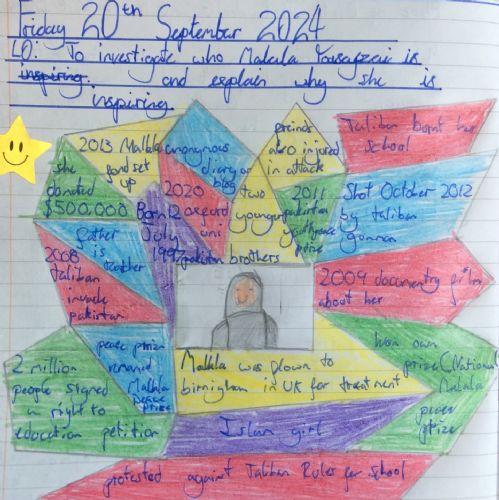 Friday 20th September 2024
LO: To investigate who Malala Yousafzai is
inspiring. and explain why she is
inspiring.
she
donated
$500,000
2013 Malala
fond set
up
anonymous
diary or
blog
friends
also injured
in attack
Taliban burnt her
school
2020
oxford
uni
Born 12
July
1997
pakistan
two
younger
brothers
2011
pakistan
youth peace
prize
Shot October 2012
by taliban
gunman
2008
taliban
invade
pakistan
father
is teacher
2009 documentry
about her
peace prize
renamed
Malala
peace
prize
2 million
people signed
a right to
education petition
Malala was flown to
birnigham in UK for treatment
won own
prize (National
Malala
peace
prize
Islam girl
protested against Taliban Rules for school